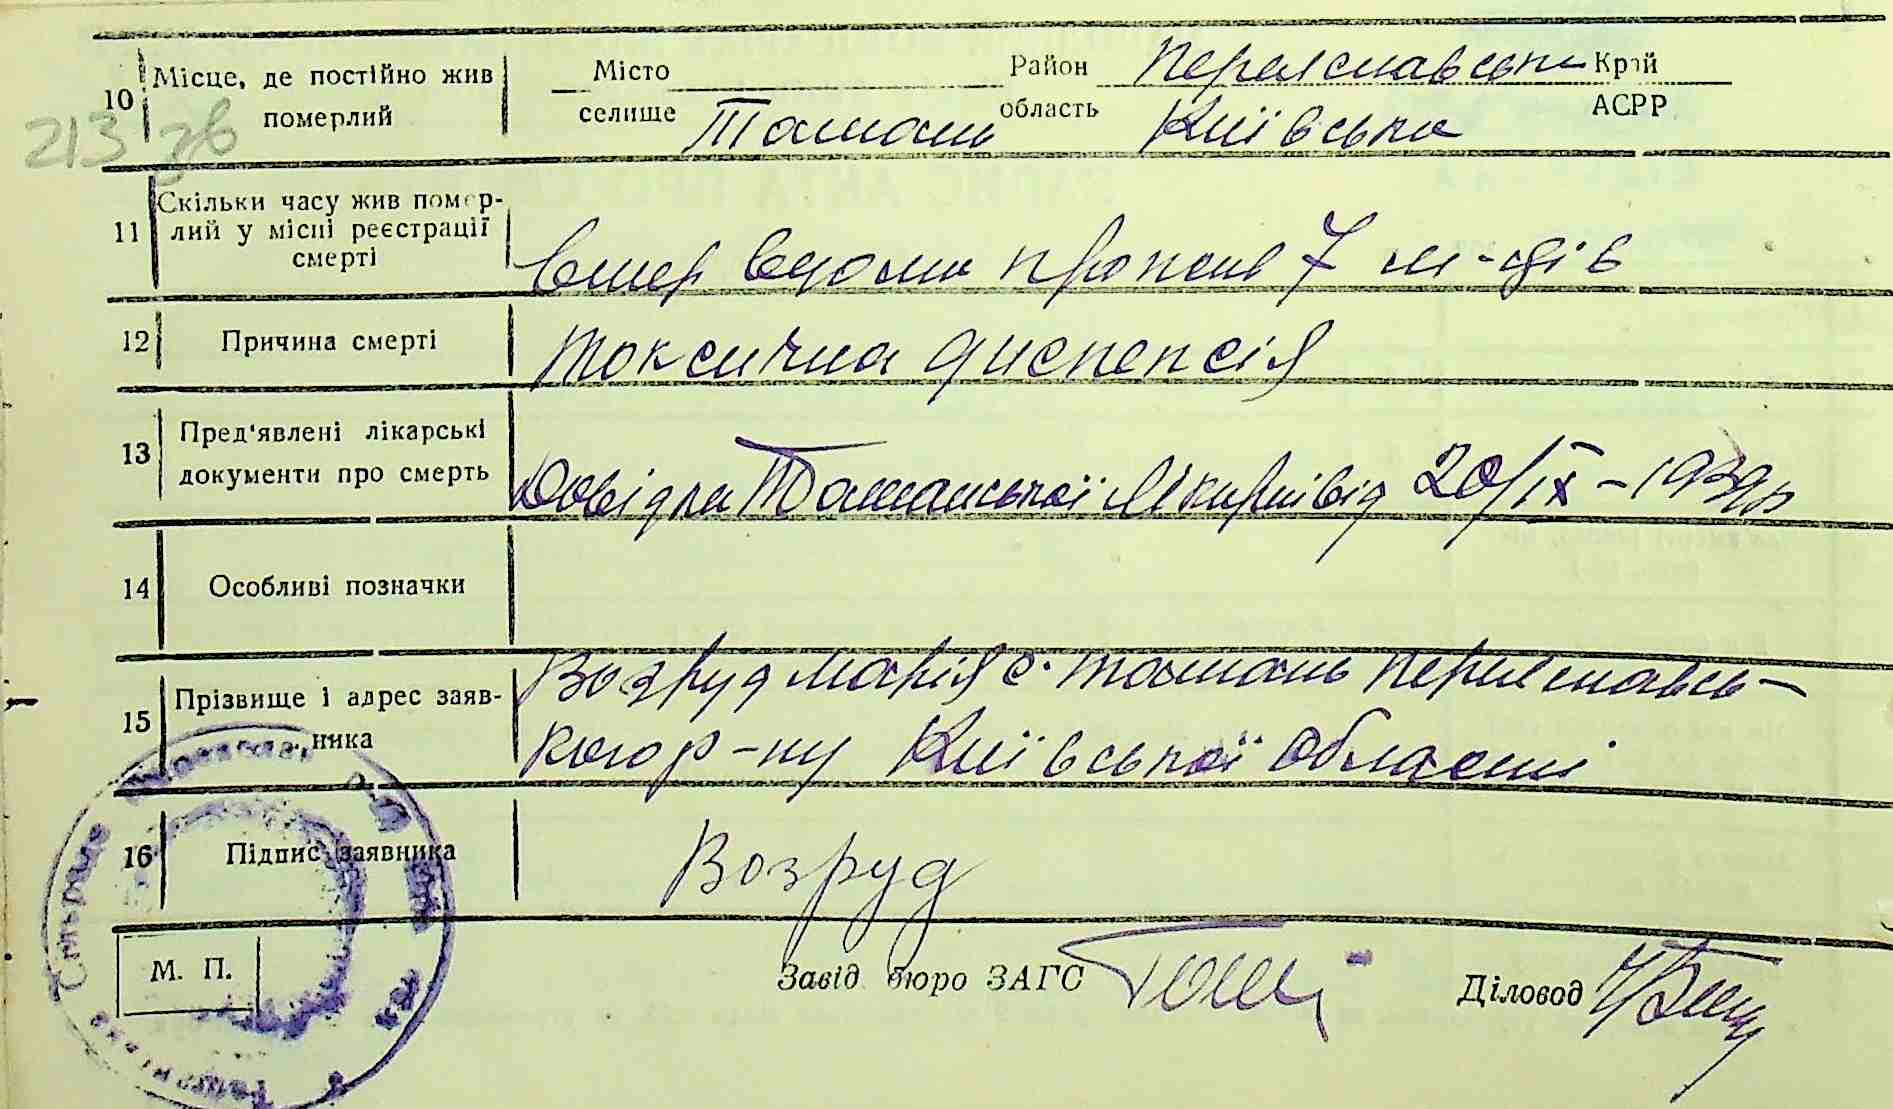 10 Місце, де постійно жив Місто Район Переяславськи Край
213 зв померлий селище Ташань область Київська АСРР
Скільки часу жив помер-
11 лий у місці реєстрації
смерті вмер вдома прожив 7 м-ців
12 Причина смерті токсична диспепсія
13 Пред'явлені лікарські
документи про смерть Довідка Ташанської лікарні від 20/IX-1939р
14 Особливі позначки
15 Прізвище і адрес заяв-
ника Возруд Марія с. Ташань Переяславсь-
кого р-ну Київської області
16 Підпис заявника Возруд
М. П. Завід бюро ЗАГС Діловод